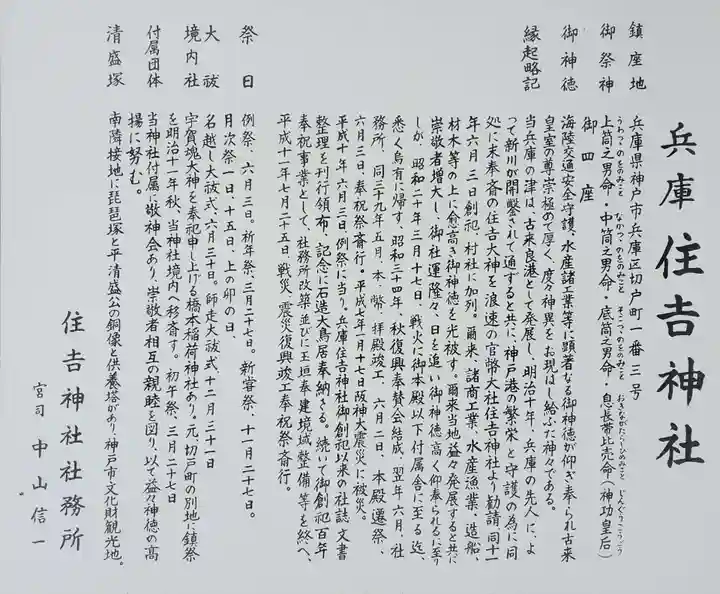 兵庫住吉神社
鎮座地 兵庫県神戸市兵庫区切戸町一番三号
うわつつのをのみこと なかつつのをのみこと そこつつのをのみこと おきながたらしひめのみこと じんぐうこうごう
御祭神 上筒之男命・中筒之男命・底筒之男命・息長帯比売命(神功皇后)
御四座
御神徳 海陸交通安全守護、水産諸工業等に顕著なる御神徳が仰ぎ奉られ古来
皇室の尊崇極めて厚く、度々神異をお現はし給ふた神々である。
縁起略記 当兵庫の津は、古来良港として発展し、明治十年、兵庫の先人に、よ
って新川が開鑿されて通すると共に、神戸港の繁栄と守護の為に同
処に末奉斎の住吉大神を浪速の官幣大社住吉神社より勧請、同十一
年六月三日創祀、村社に加列。爾来、諸商工業、水産漁業、造船、
材木等の上に愈高き御神徳を光被す。爾来当地益々発展すると共に
崇敬者増大し、御社運隆々、日を追い御神徳高く仰奉られるに至り
しが、昭和二十年三月十七日、戦火に御本殿以下付属舎に至る迄、
悉く烏有に帰す、昭和三十四年、秋復興奉賛会結成、翌年六月、社
務所、同三十九年五月、本、幣、拝殿竣工、六月二日、本殿遷祭、
六月三日、奉祝祭斎行・平成七年一月十七日阪神大震災に被災。
平成十年六月三日例祭に当り、兵庫住吉神社御創祀以来の社誌文書
整理を刊行頒布、記念に石造大鳥居奉納さる。続いて御創祀百年
奉祝事業として、社務所改築並びに玉垣奉建境域整備等を終へ、
平成十一年七月二十五日、戦災、震災復興竣工奉祝祭斎行。
祭日 例祭、六月三日。祈年祭、三月二十七日。新嘗祭、十一月二十七日。
月次祭一日、十五日、上の卯の日、
大祓 名越し大祓式、六月三十日。師走大祓式十二月三十一日
境内社 宇賀魂大神を奉祀申し上げる橋本稲荷神社あり。元、切戸町の別地に鎮祭
を明治十一年秋、当神社境内へ移斎す。初午祭、三月二十七日
付属団体 当神社付属に敬神会あり、崇敬者相互の親睦を図り、以て益々神徳の高
揚に努む。
清盛塚 南隣接地に琵琶塚と平清盛公の銅像と供養塔があり、神戸市文化財観光地。
住吉神社社務所
宮司 中山信一